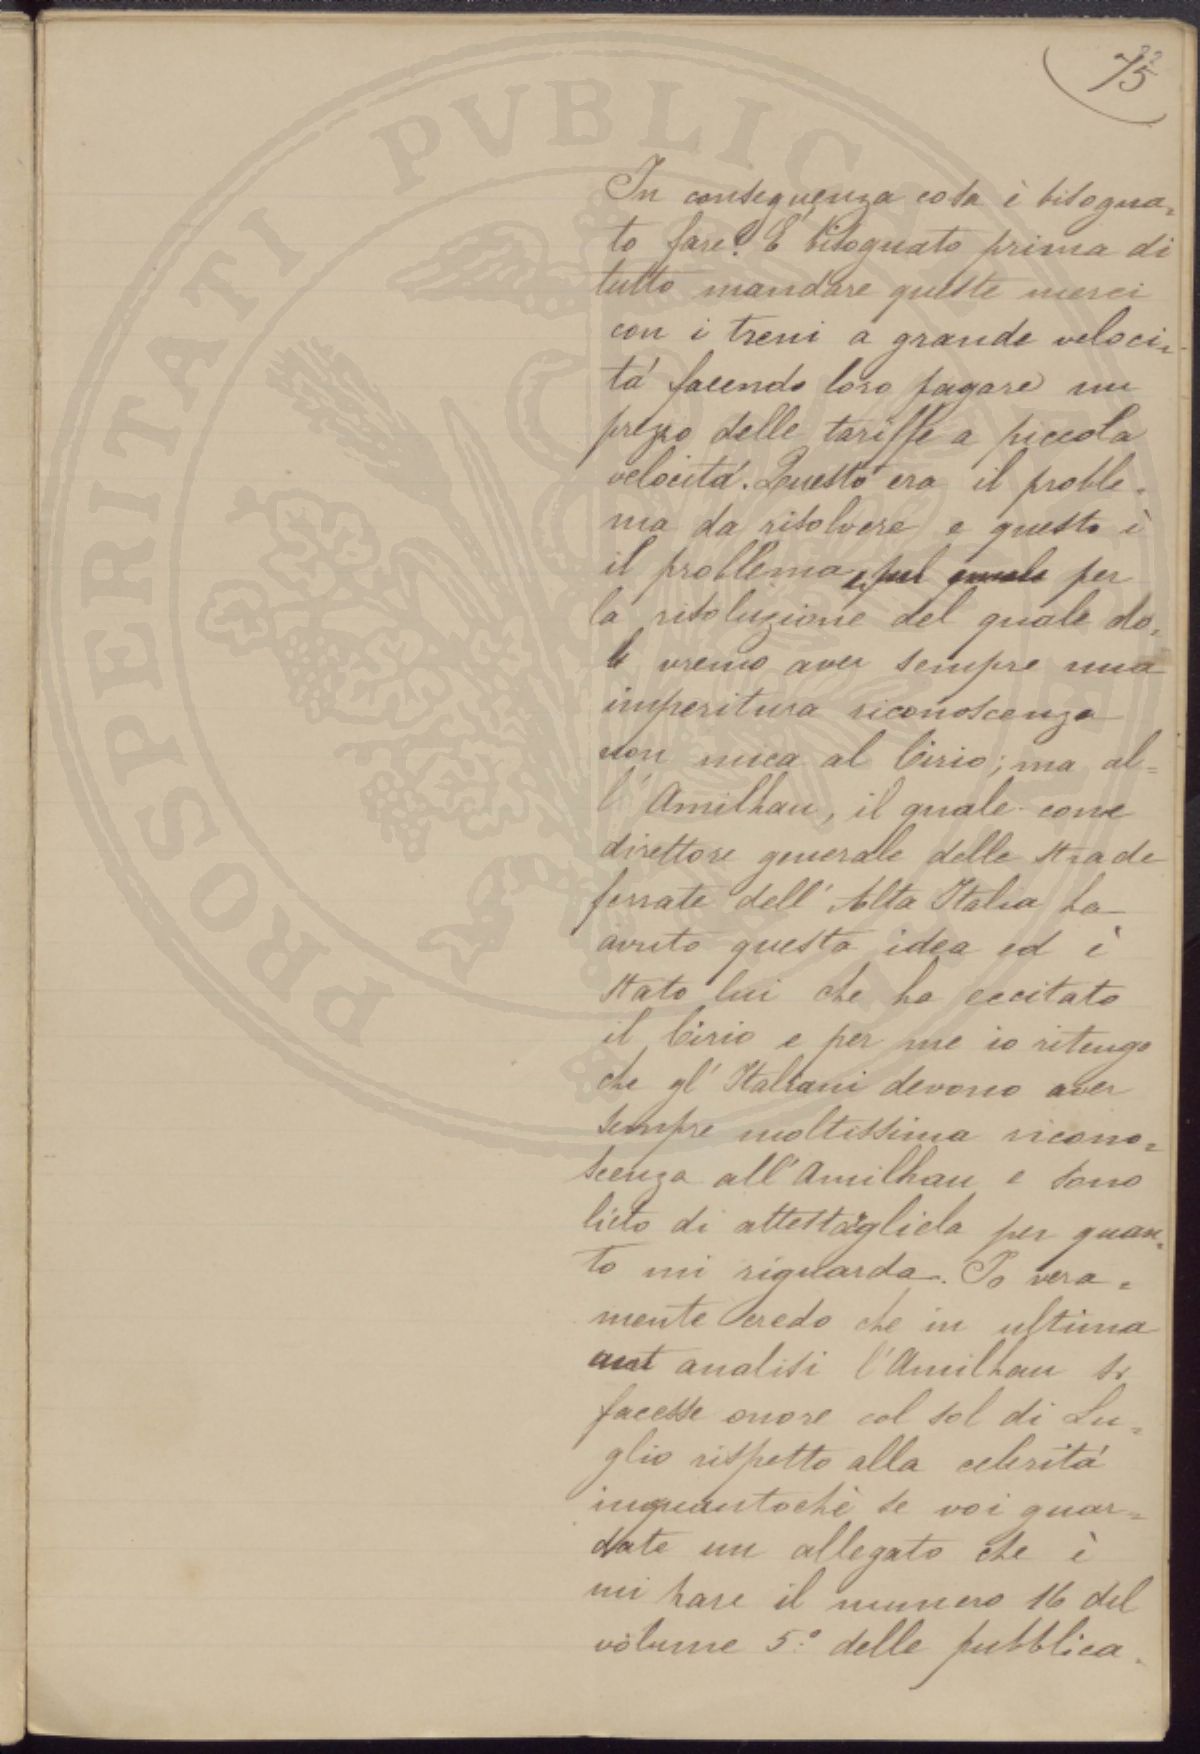 75
In conseguenza cosa è bisogna=
to fare? È bisognato prima di
tutto mandare queste merci
con i treni a grande veloci=
tà facendo loro pagare un
prezzo delle tariffe a piccola
velocità. Questo era il proble=
ma da risolvere e questo è
il problema, pel quale per
la risoluzione del quale do=
vremo aver sempre una
imperitura riconoscenza
non mica al Cirio; ma al=
l'Amilhau, il quale come
direttore generale delle strade
ferrate dell'Alta Italia ha
avuto questa idea ed è
stato lui che ha eccitato
il Cirio e per me io ritengo
che gl'Italiani devono aver
sempre moltissima ricono=
scenza all'Amilhau e sono
lieto di attestargliela per quan=
to mi riguarda. Io vera=
mente credo che in ultima
analisi l'Amilhau si
facesse onore col sol di Lu=
glio rispetto alla celerità
inquantochè se voi guar=
date un allegato che è
mi pare il numero 16 del
volume 5.° delle pubblica=
PROSPERITATI PVBLICAE